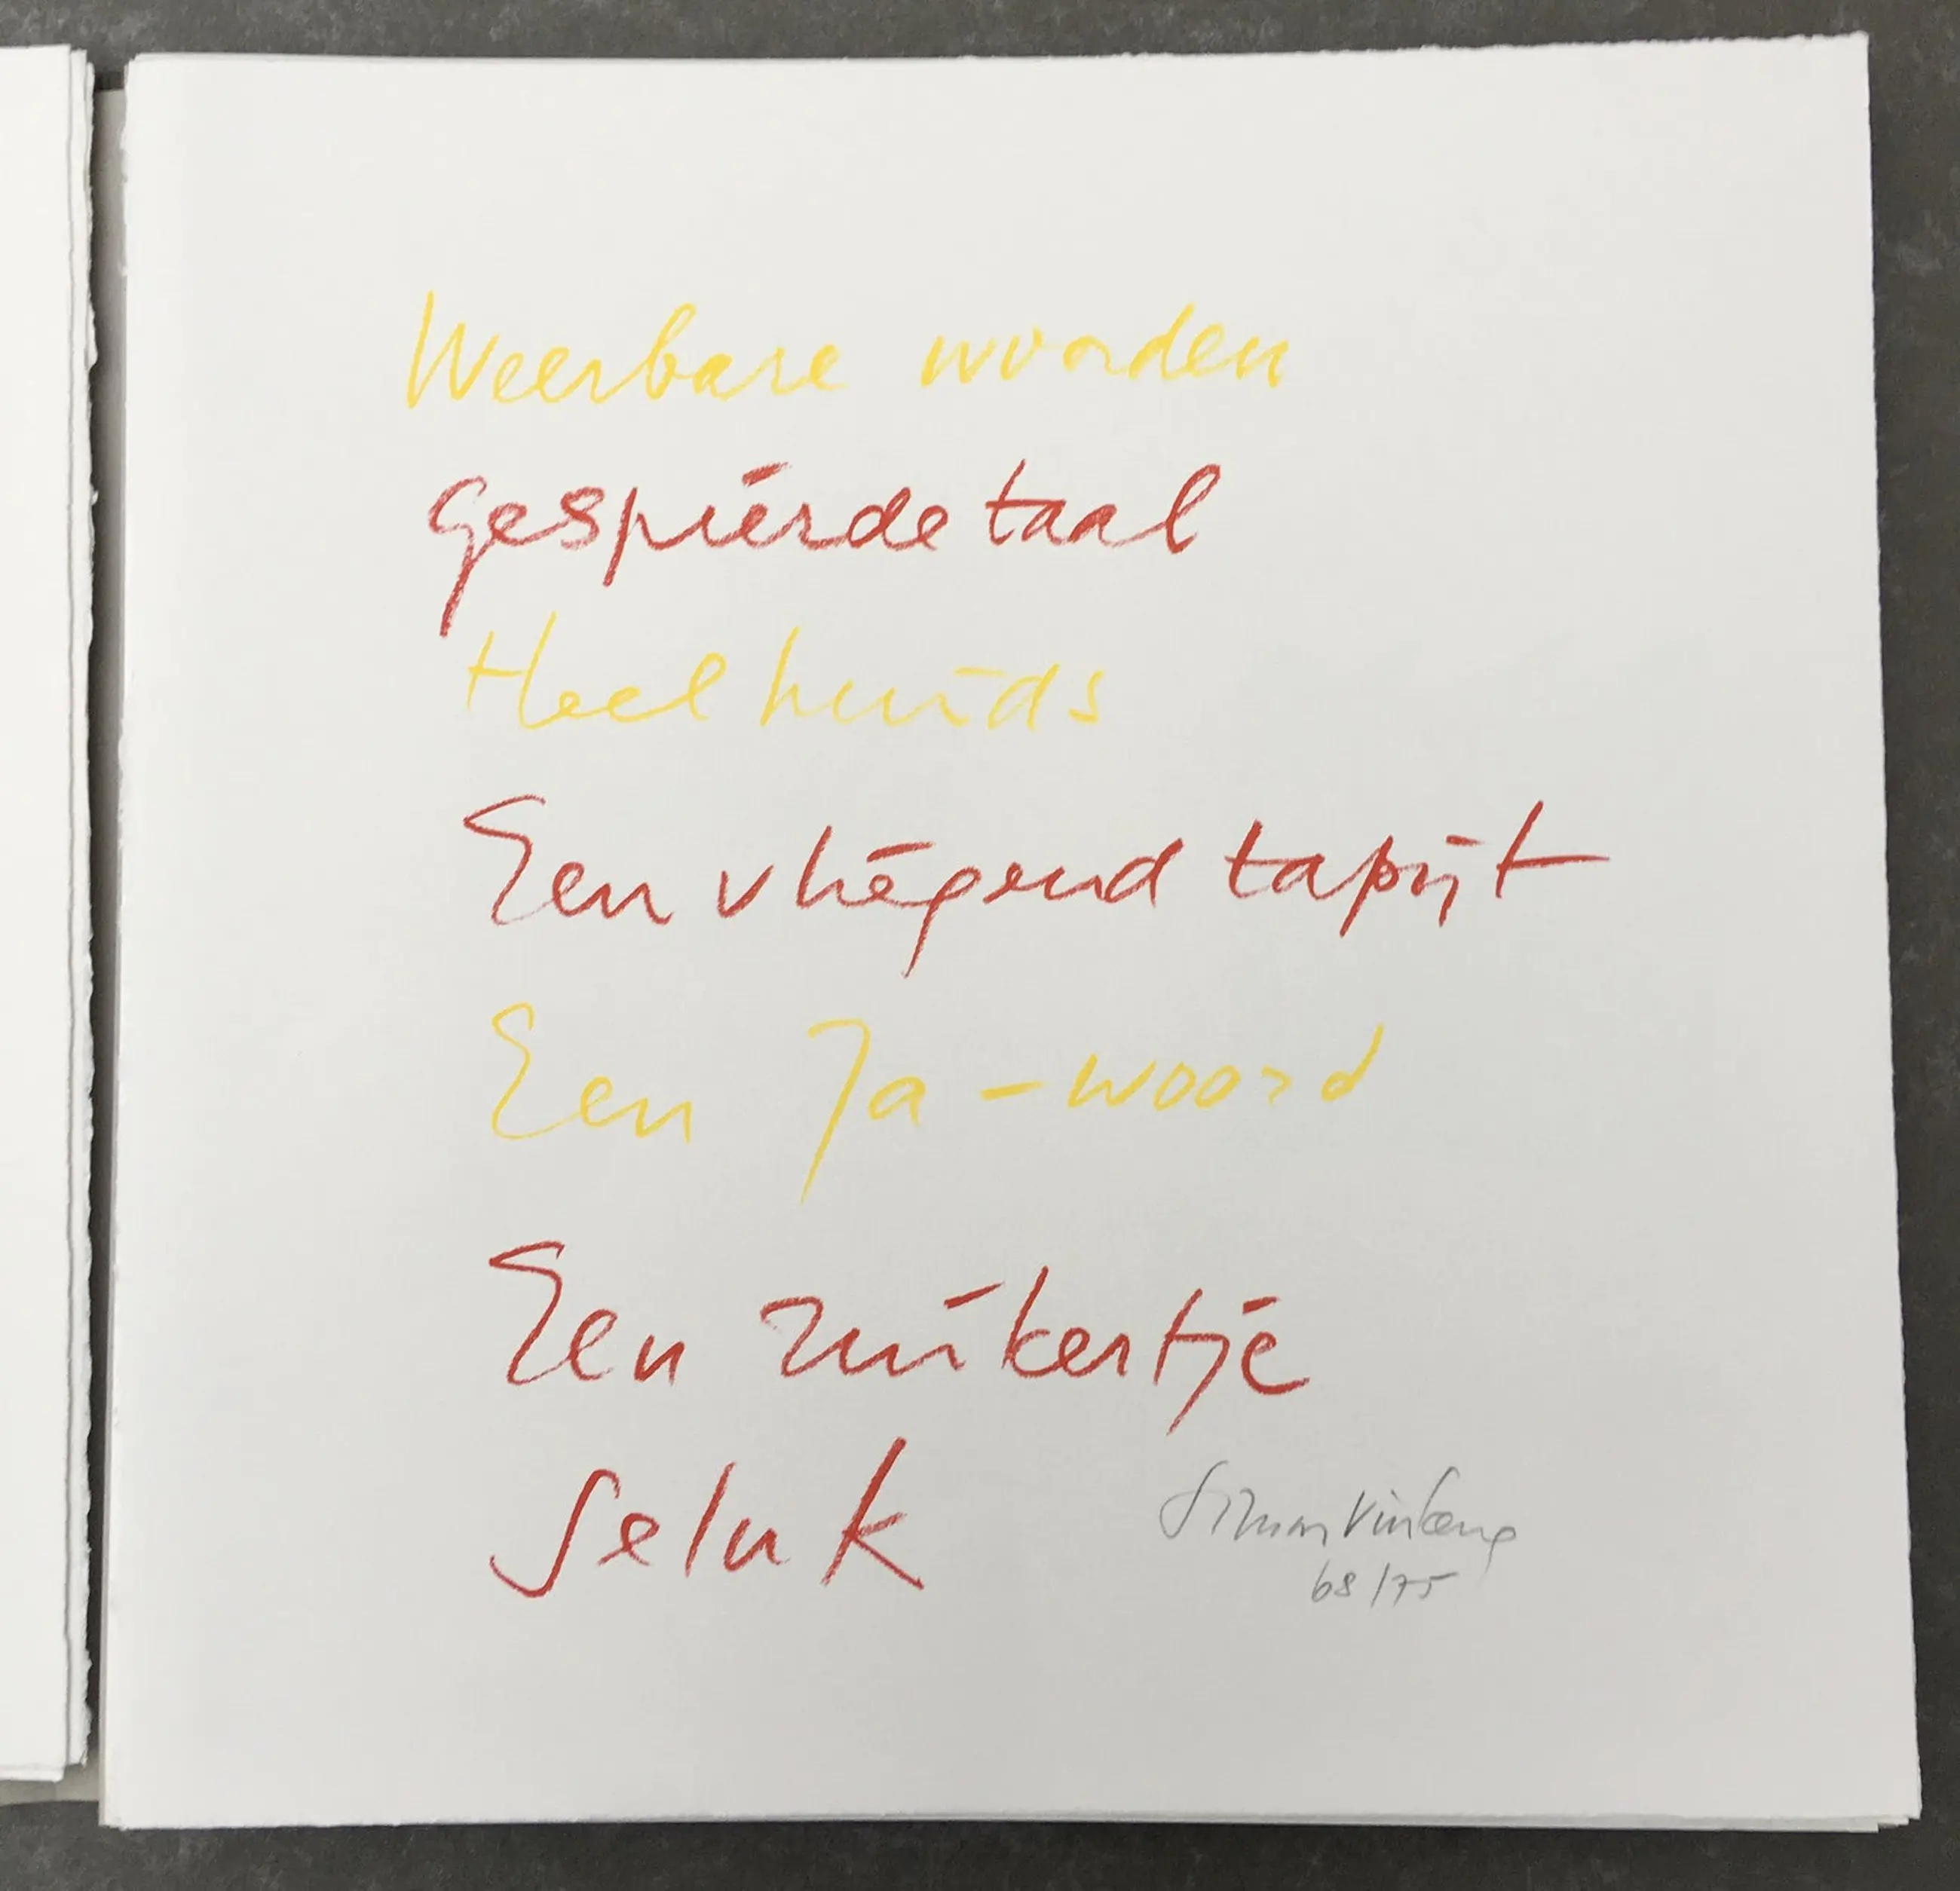 Weerbare woorden
gespierde taal
Heelhuids
Een vliegend tapijt
Een Ja-woord
Een zuikertje
Geluk
Simon Vinkenoog
68/75